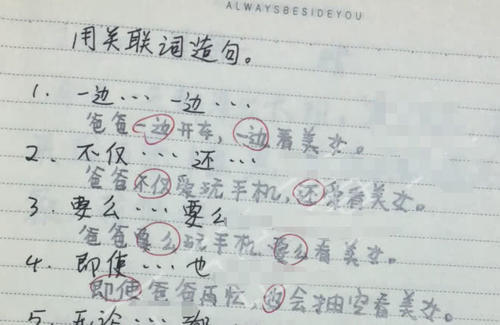 ALWAYSBESIDEYOU
用关联词造句。
1. 一边… 一边…
爸爸一边开车，一边看美女。
2. 不仅… 还…
爸爸不仅爱玩手机，还爱看美女。
3. 要么… 要么
爸爸要么玩手机 要么看美女。
4. 即使… 也
即使爸爸再忙，也会抽空看美女。
5. 无论…